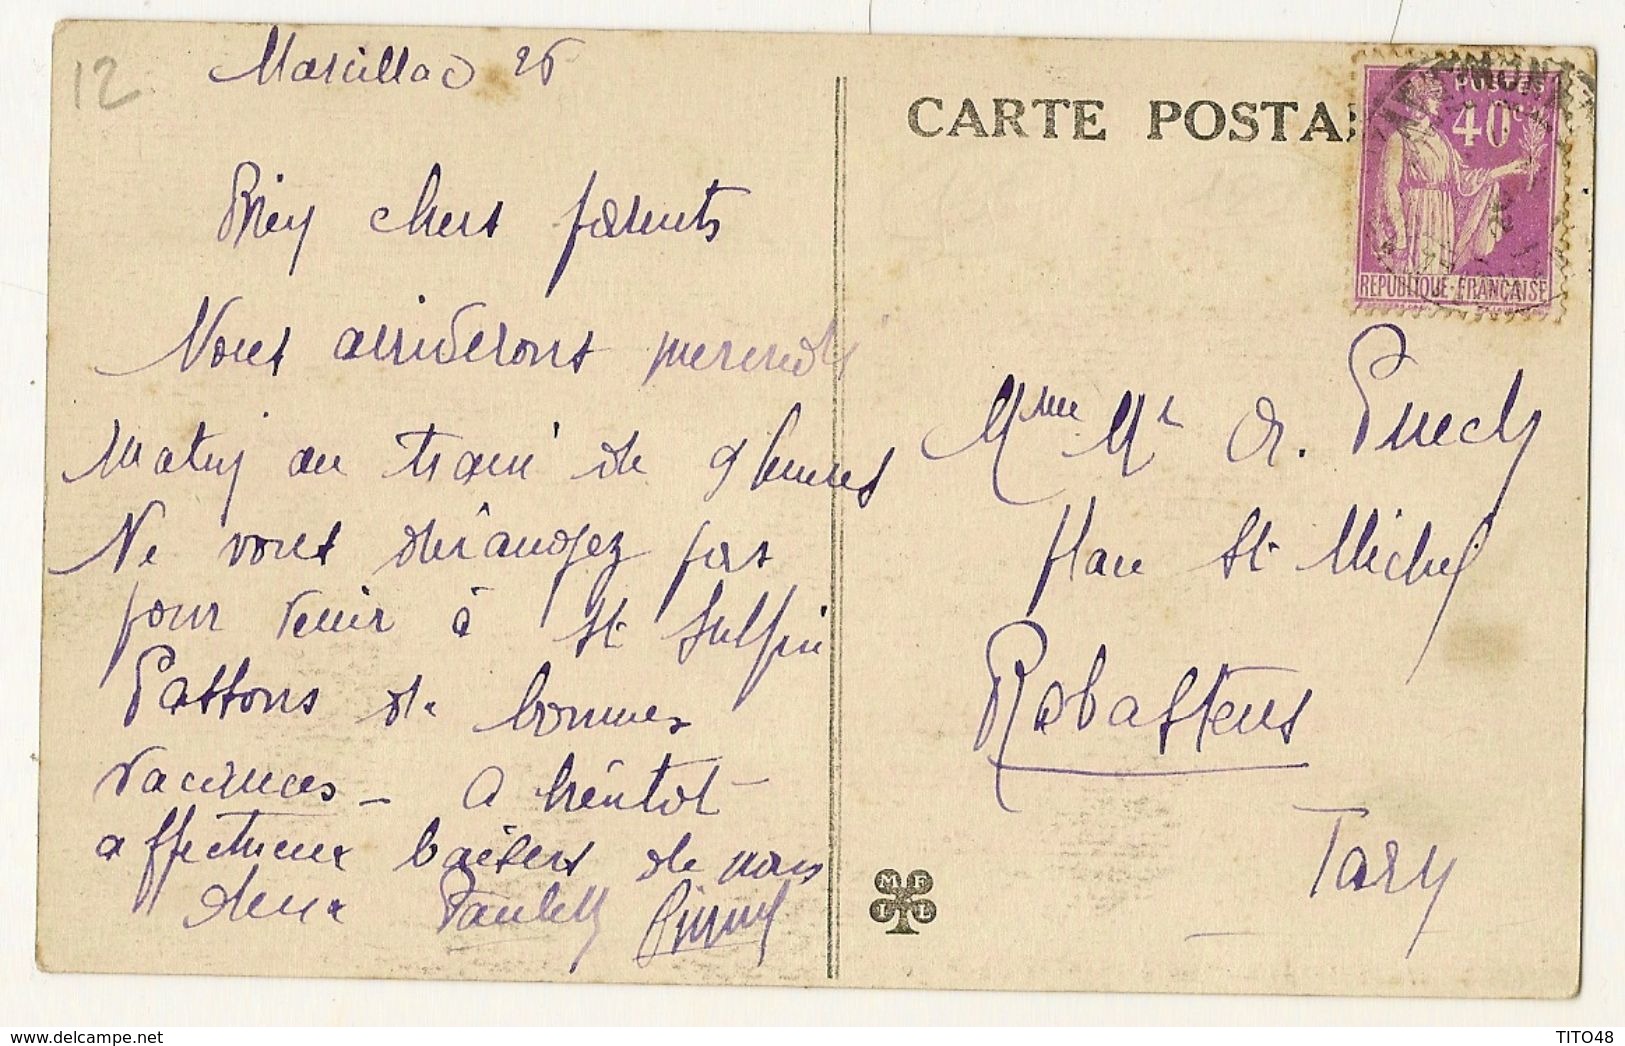 12
Marcillac 26
CARTE POSTA
POSTES
40c
REPUBLIQUE FRANÇAISE
Bien chers parents
Nous arriverons mercredi
matin au train de 9 heures
Ne vous dérangez pas
pour venir à St Sulpice
Passons de bonnes
vacances - A bientôt -
affectueux baisers de nous
deux Paulette
Mme Mr A. Puech
Place St Michel
Rabastens
Tarn
M F
L L
TITO48